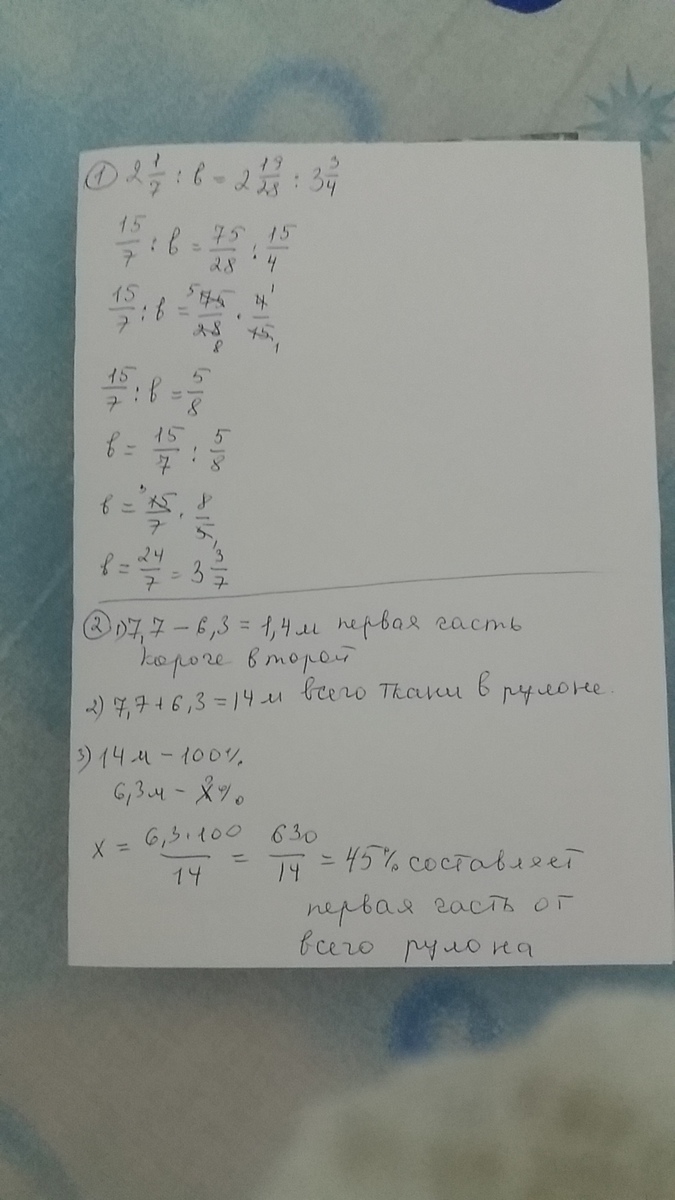 ① 2 1/7 : в = 2 19/28 : 3 3/4
15/7 : в = 75/28 : 15/4
15/7 : в = 5 75/28 8 · 4 1/15 1
15/7 : в = 5/8
в = 15/7 : 5/8
в = 3 15/7 · 8/5 1
в = 24/7 = 3 3/7
② 1) 7,7 – 6,3 = 1,4 м первая часть
короче второй
2) 7,7 + 6,3 = 14 м всего ткани в рулоне.
3) 14 м – 100%
6,3 м – х%
х = 6,3·100/14 = 630/14 = 45% составляет
первая часть от
всего рулона